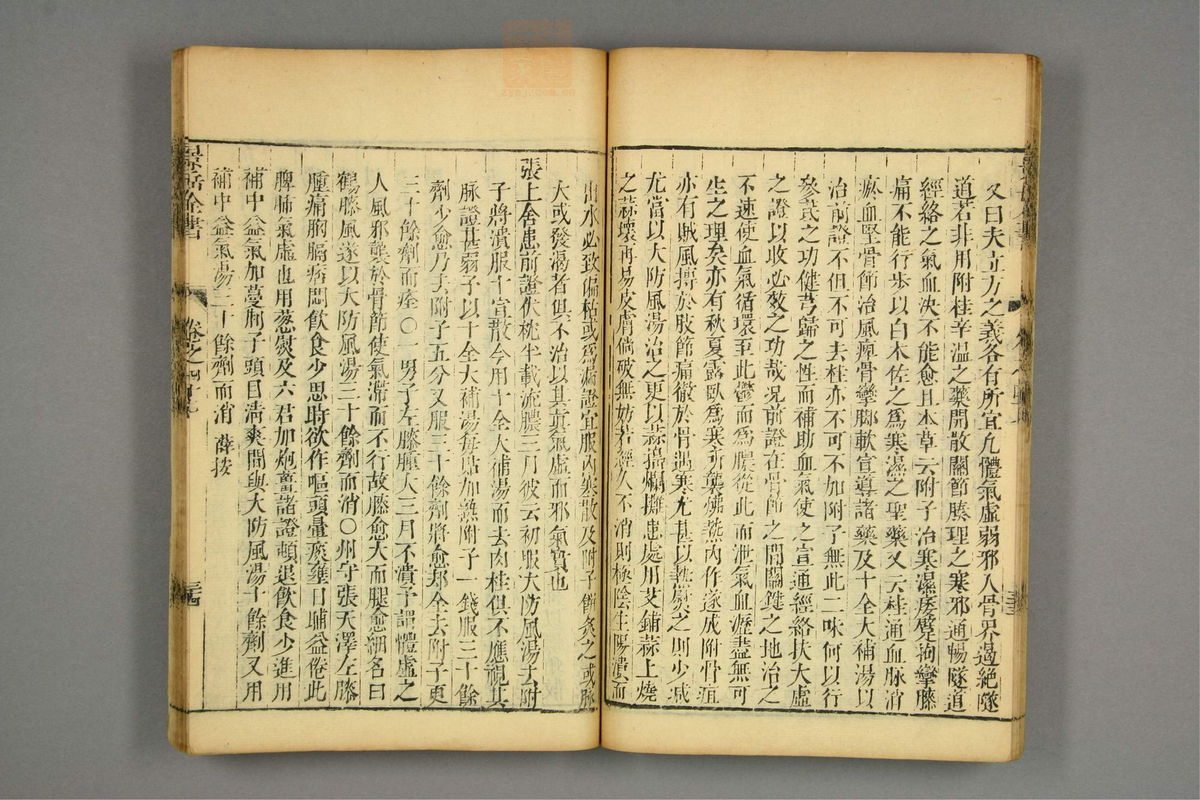 又曰夫立方之義各有所宜凡體氣虛弱邪入骨界遏絶隧
道若非用附桂辛溫之藥開散關節腠理之寒邪通暢隧道
經絡之氣血决不能愈且本草云附子治寒濕痿躄拘攣膝
痛不能行步以白木佐之爲寒濕之聖藥又云桂通血脉消
瘀血堅骨節治風痺骨攣脚軟宣導諸藥及十全大補湯以
治前證不但不可去桂亦不可不加附子無此二味何以行
參芪之功健芎歸之性而補助血氣使之宣通經絡扶大虛
之證以收必效之功哉况前證在骨節之間關鍵之地治之
不速使血氣循環至此鬱而爲膿從此而泄氣血瀝盡無可
生之理矣亦有秋夏露臥爲寒所襲拂熱內作遂成附骨疽
亦有賊風摶於肢節痛徹於骨遇寒尤甚以熱熨之則少减
尤當以大防風湯治之更以蒜搗爛攤患處用艾鋪蒜上燒
之蒜壞再易皮膚倘破無妨若經久不消則極陰生陽潰而
出水必致偏枯或爲漏證宜服內塞散及附子餅灸之或脉
大或發渴者俱不治以其真氣虛而邪氣實也
張上舍患前證伏枕半載流膿三月彼云初服大防風湯去附
子將潰服十宣散今用十全大補湯而去肉桂俱不應視其
脉證甚弱予以十全大補湯每貼加熟附子一錢服三十餘
劑少愈乃去附子五分又服三十餘劑將愈却全去附子更
三十餘劑而痊〇一男子左膝腫大三月不潰予謂體虛之
人風邪襲於骨節使氣滯而不行故膝愈大而腿愈細名曰
鶴膝風遂以大防風湯三十餘劑而消〇州守張天澤左膝
腫痛胸膈痞悶飲食少思時欲作嘔頭暈痰壅日晡益倦此
脾肺氣虛也用葱熨及六君加炮薑諸證頓退飲食少進用
補中益氣加蔓荆子頭目淸爽間與大防風湯十餘劑又用
補中益氣湯三十餘劑而消 薛按
景岳全書
卷之四十七
三十四